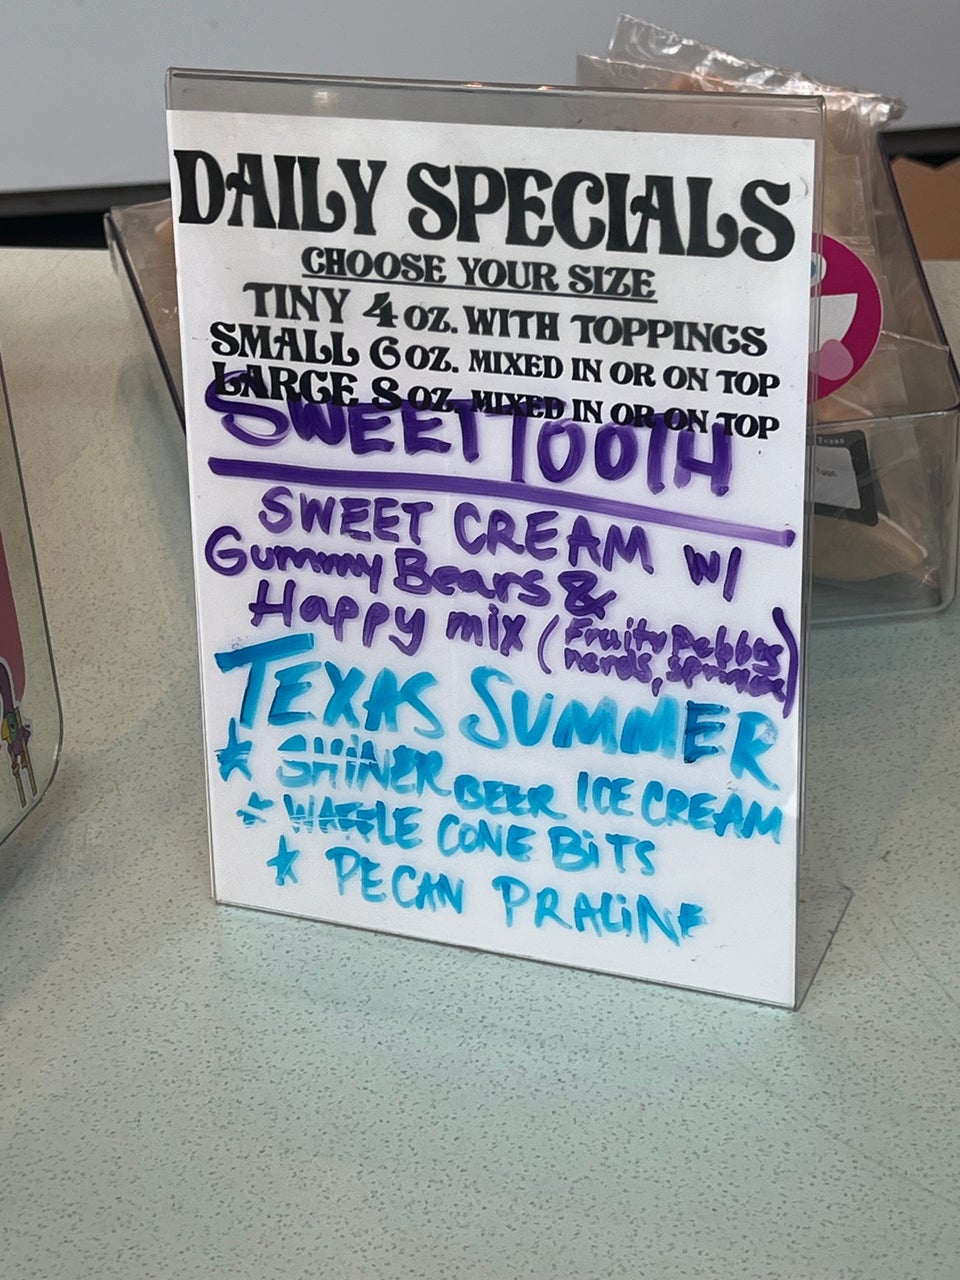 DAILY SPECIALS
CHOOSE YOUR SIZE
TINY 4 OZ. WITH TOPPINGS
SMALL 6 OZ. MIXED IN OR ON TOP
LARGE 8 OZ. MIXED IN OR ON TOP
SWEET TOOTH
SWEET CREAM W/
Gummy Bears &
Happy mix (Fruity Pebbles
nerds,
TEXAS SUMMER
SHINER BEER ICE CREAM
WAFFLE CONE BiTS
PECAN PRALINE
Texas